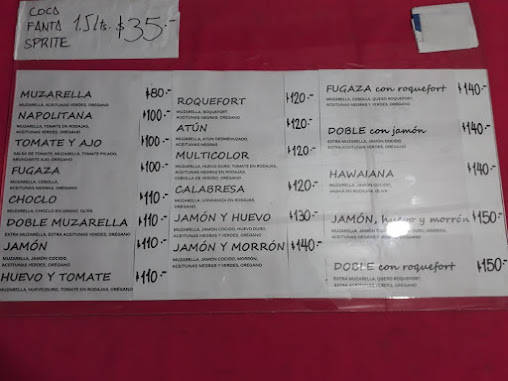 COCA
FANTA 1.5 Lts. $35.-
SPRITE
MUZARELLA $80.-
MUZARELLA, ACEITUNAS VERDES, OREGANO
NAPOLITANA $100.-
MUZARELLA, TOMATE EN RODAJAS,
ACEITUNAS VERDES, OREGANO
TOMATE Y AJO $100.-
SALSA DE TOMATE, MUZARELLA, TOMATE PICADO,
ABUNDANTE AJO, OREGANO
FUGAZA $100.-
MUZARELLA, CEBOLLA,
ACEITUNAS NEGRAS, OREGANO
CHOCLO $110.-
MUZARELLA, CHOCLO EN GRANO,
DOBLE MUZARELLA $110.-
EXTRA MUZARELLA, EXTRA ACEITUNAS VERDES, OREGANO
JAMÓN $110.-
MUZARELLA, JAMON COCIDO,
ACEITUNAS VERDES, OREGANO
HUEVO Y TOMATE $110.-
MUZARELLA, HUEVO DURO, TOMATE EN RODAJAS, OREGANO
ROQUEFORT $120.-
MUZARELLA, ROQUEFORT,
ACEITUNAS NEGRAS, OREGANO
ATÚN $120.-
MUZARELLA, ATUN DESMENUZADO,
ACEITUNAS NEGRAS
MULTICOLOR $120.-
MUZARELLA, HUEVO DURO, TOMATE EN RODAJAS,
ACEITUNAS NEGRAS Y VERDES,
CEBOLLA DE VERDEO, OREGANO
CALABRESA $120.-
MUZARELLA, LONGANIZA EN RODAJAS,
JAMÓN Y HUEVO $130.-
MUZARELLA, JAMON COCIDO, HUEVO DURO,
ACEITUNAS NEGRAS Y VERDES, OREGANO
JAMÓN Y MORRÓN $140.-
MUZARELLA, JAMON COCIDO, MORRON,
ACEITUNAS NEGRAS Y VERDES, OREGANO
FUGAZA con roquefort $140.-
MUZARELLA, CEBOLLA, QUESO ROQUEFORT,
ACEITUNAS NEGRAS Y VERDES, OREGANO
DOBLE con jamón $140.-
EXTRA MUZARELLA, JAMON COCIDO,
ACEITUNAS VERDES, OREGANO
HAWAIANA $140.-
MUZARELLA, JAMON COCIDO,
JAMÓN, huevo y morrón $150.-
MUZARELLA, JAMON COCIDO, HUEVO DURO, MORRON,
ACEITUNAS NEGRAS Y VERDES, OREGANO
DOBLE con roquefort $150.-
EXTRA MUZARELLA, QUESO ROQUEFORT,
EXTRA ACEITUNAS VERDES, OREGANO